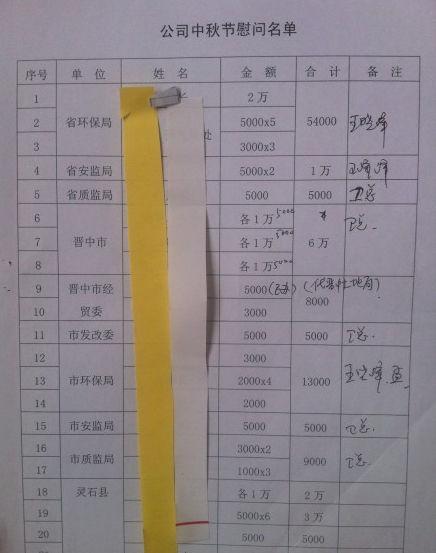 公司中秋节慰问名单
序号 单 位 姓 名 金 额 合 计 备 注
1 2万
2 省环保局 处 5000x5 54000
3 3000x3
4 省安监局 5000x2 1万
5 省质监局 5000 5000 卫总
6 各1万 5000 卫总.
7 晋中市 各1万 5000 6万
8 各1万 5000
9 晋中市经 5000
10 贸委 3000 8000
11 市发改委 5000 5000 卫总.
12 3000
13 市环保局 2000x4 13000
14 2000
15 市安监局 5000 5000 卫总.
16 市质监局 3000x2 9000 卫总.
17 1000x3
18 灵石县 各1万 2万
19 5000x6 3万
20 5000 5000